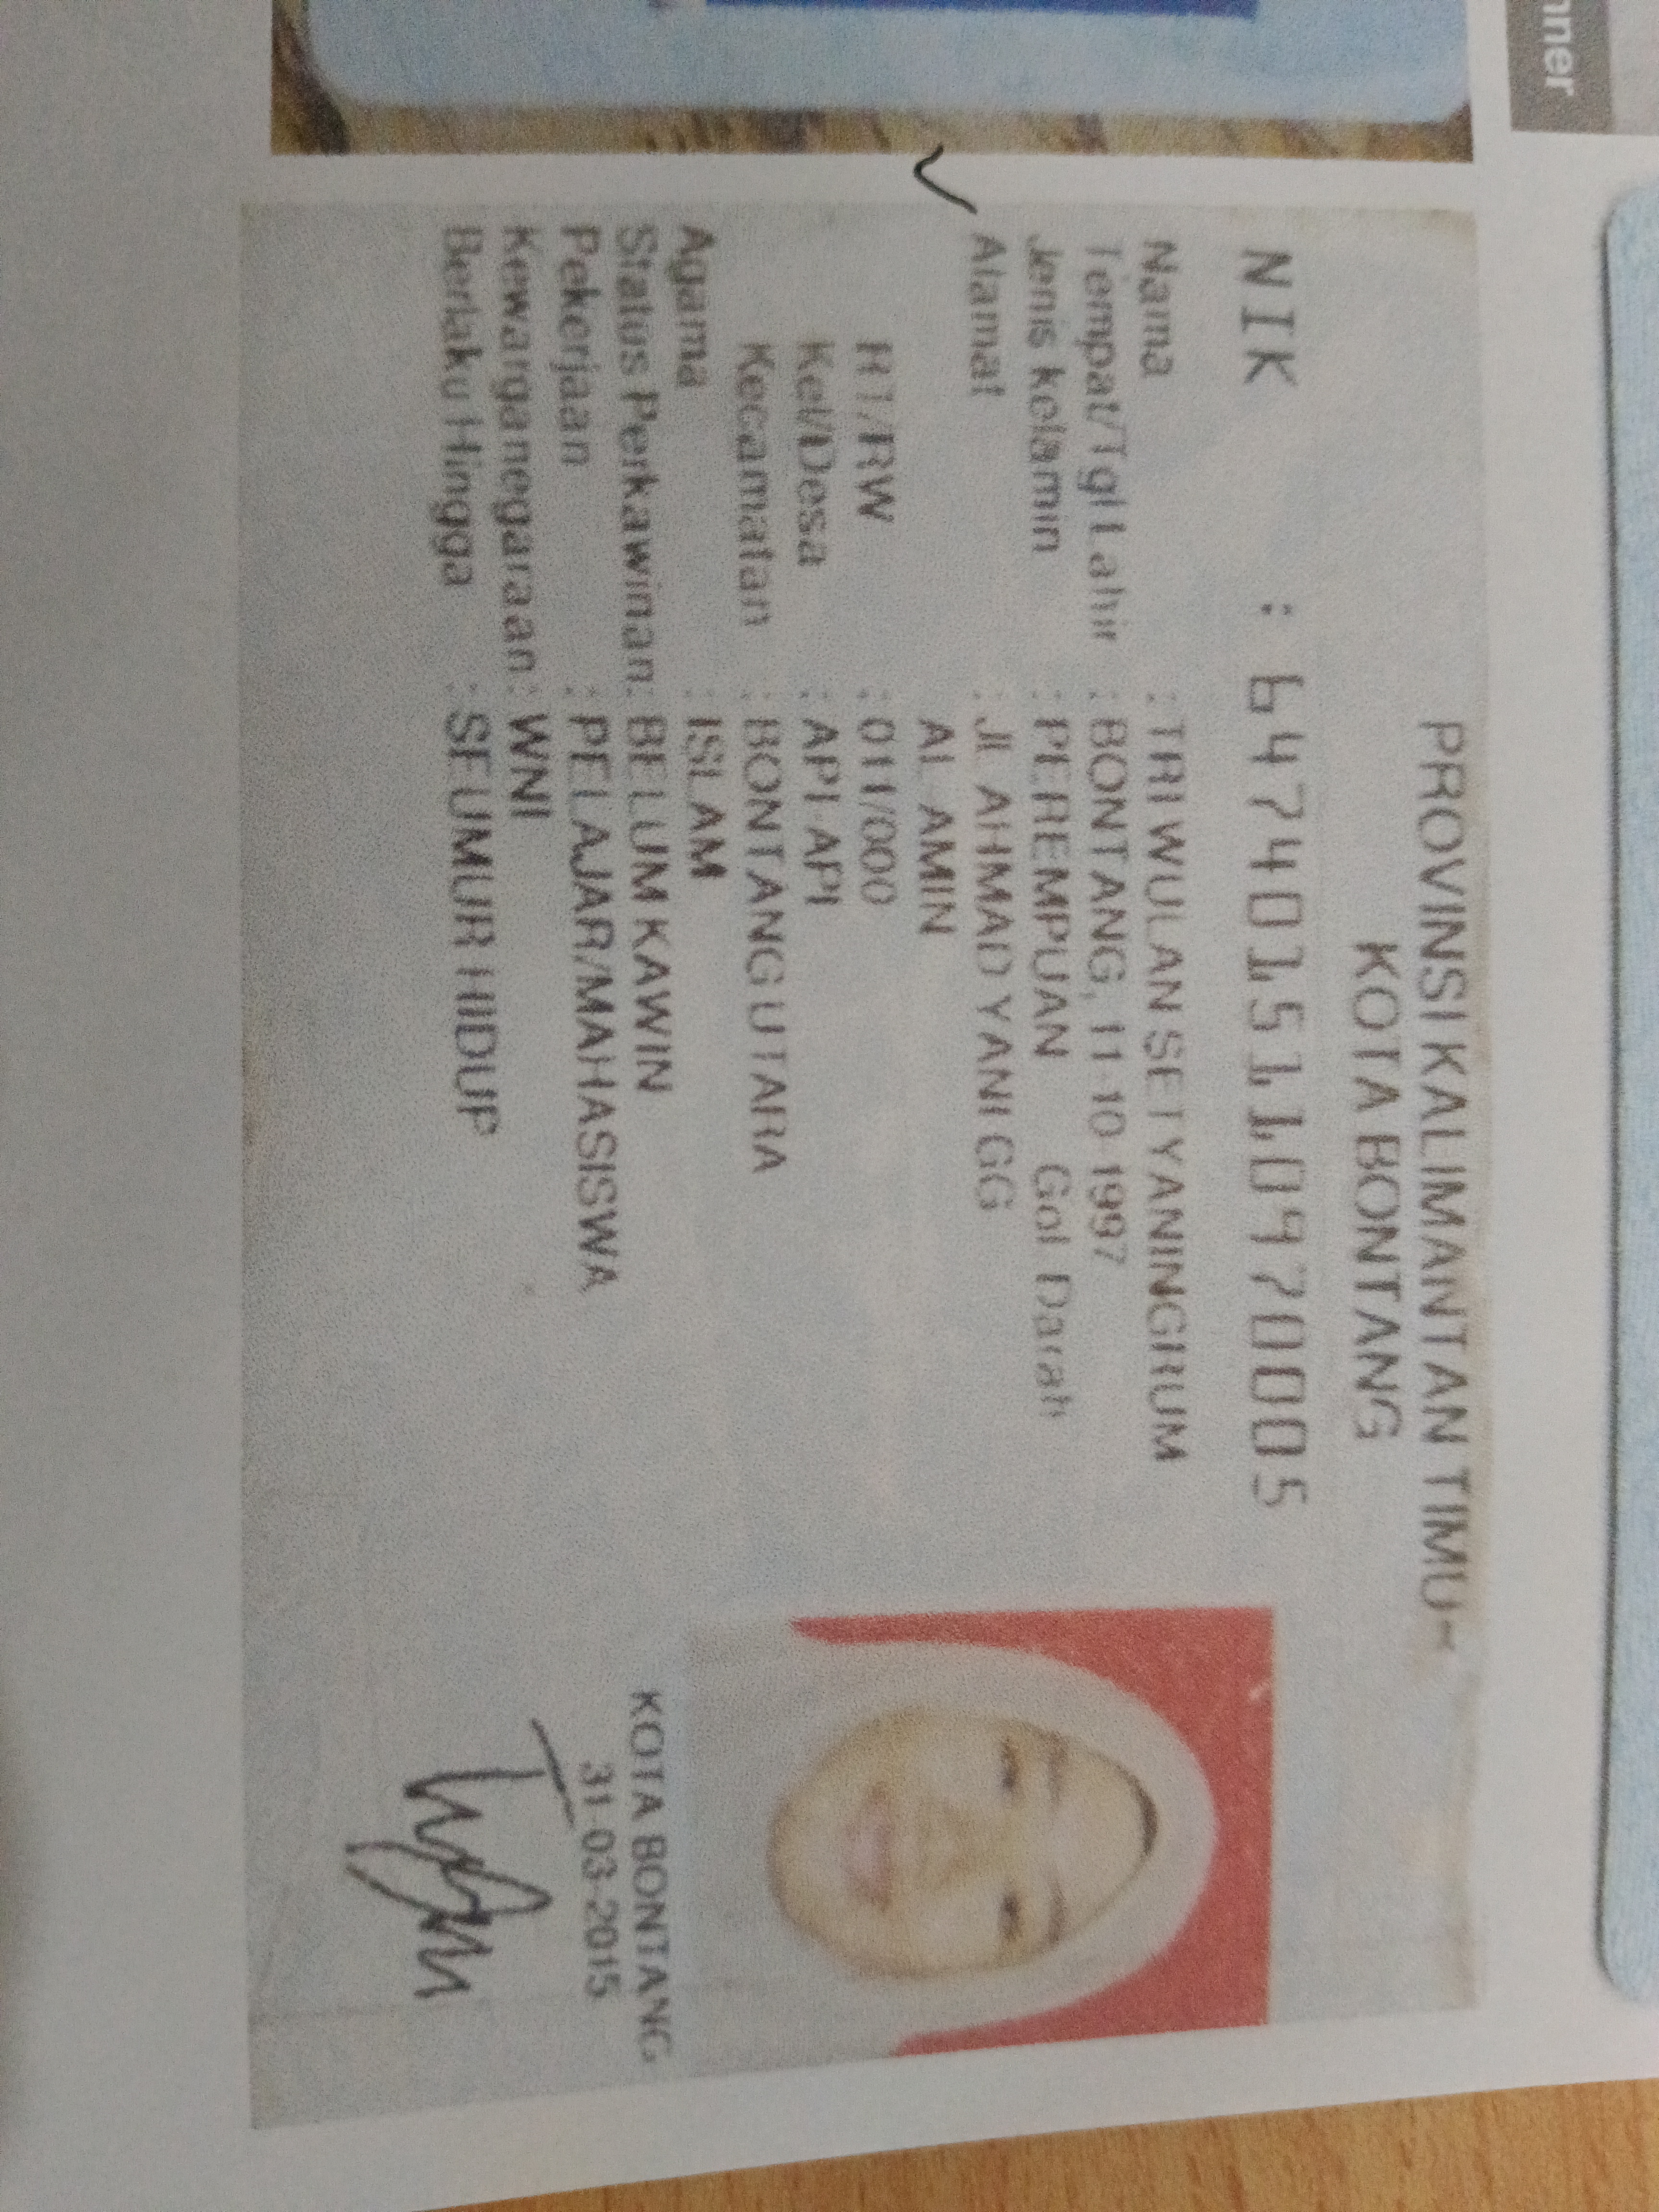 nner
PROVINSI KALIMANTAN TIMUR
KOTA BONTANG
NIK : 6474015110970005
Nama : TRI WULAN SETYANINGRUM
Tempat/Tgl Lahir : BONTANG, 11-10-1997
Jenis kelamin : PEREMPUAN Gol Darah
Alamat : JL AHMAD YANI GG
AL-AMIN
RT/RW : 011/000
Kel/Desa : API-API
Kecamatan : BONTANG UTARA
Agama : ISLAM
Status Perkawinan: BELUM KAWIN
Pekerjaan : PELAJAR/MAHASISWA
Kewarganegaraan: WNI
Berlaku Hingga : SEUMUR HIDUP
KOTA BONTANG
31-03-2015